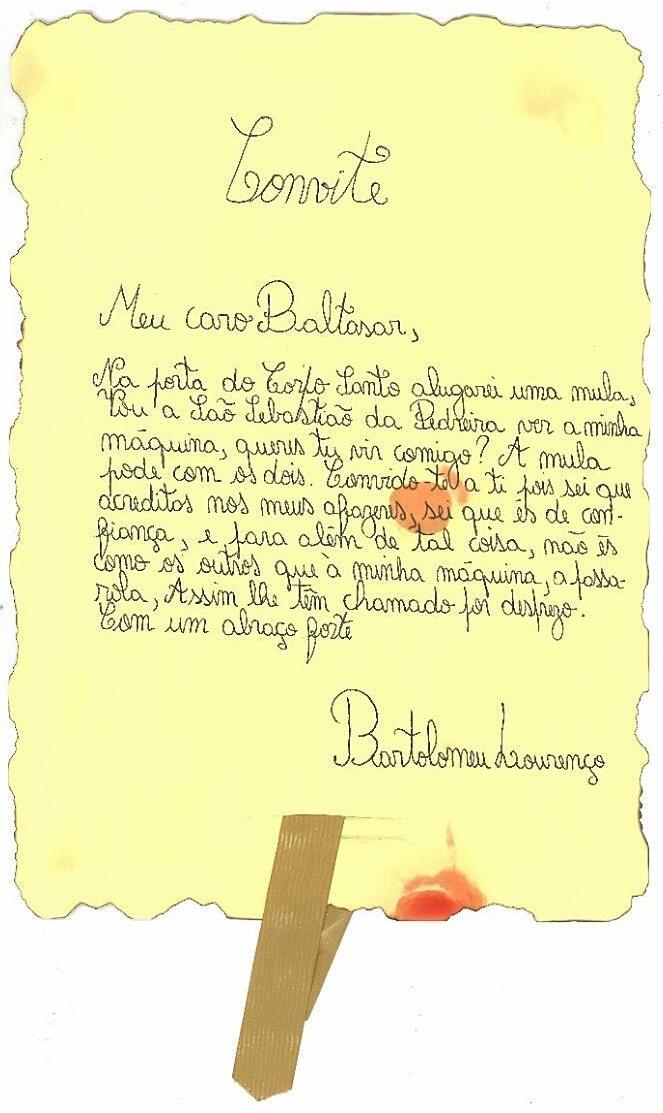 Convite
Meu caro Baltasar,
Na porta do Corpo Santo alugarei uma mula,
Vou a São Sebastião da Pedreira ver a minha
máquina, queres tu vir comigo? A mula
pode com os dois. Convido-te a ti pois sei que
acreditos nos meus afazeres, sei que és de con-
fiança, e para além de tal coisa, não és
como os outros que à minha máquina, a passa-
rola, Assim lhe têm chamado por desprezo.
Com um abraço forte
Bartolomeu Lourenço